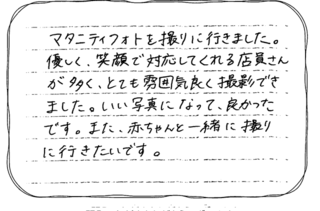 マタニティフォトを撮りに行きました。
優しく、笑顔で対応してくれる店員さん
が多く、とても雰囲気良く撮影でき
ました。いい写真になって、良かった
です。また、赤ちゃんと一緒に撮り
に行きたいです。